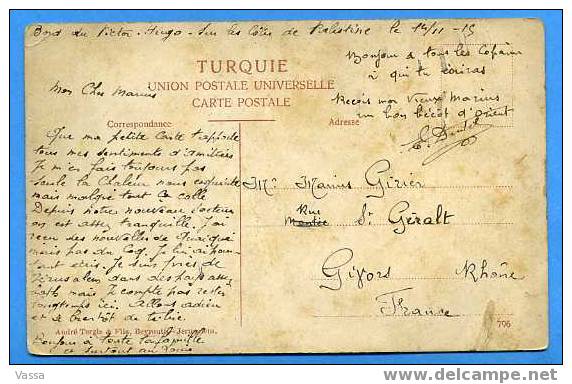 Bord du Victor-Hugo - Sur les Côtes de Palestine le 14/11-15
Bonjour à tous les Copains
à qui tu écriras
TURQUIE
UNION POSTALE UNIVERSELLE
CARTE POSTALE
Mon Cher Marius
Reçois mon Vieux Marius
un bon bécot d'Orient
Correspondance
Adresse
Que ma petite Carte t'apporte
tous mes sentiments d'amitiés
Je m'en fais toujours pas
Seule la Chaleur nous
mais malgré tout ça colle
Depuis notre nouveau secteur
on est assez tranquille. J'ai
reçu des nouvelles de
mais pas du Coq. Je lui ai pour-
tant écris. Je suis près de
Jérusalem dans des pays assez
mais je compte pas rester
longtemps ici. Allons adieu
et à bientôt de te lire.
Mr Marius Girier
Rue
Montée St Géralt
Givors Rhône
France
André Terzis & Fils, Beyrouth-Jérusalem.
706
Bonjour à toute ta famille
et surtout au
Vassa
http://www.delcampe.net